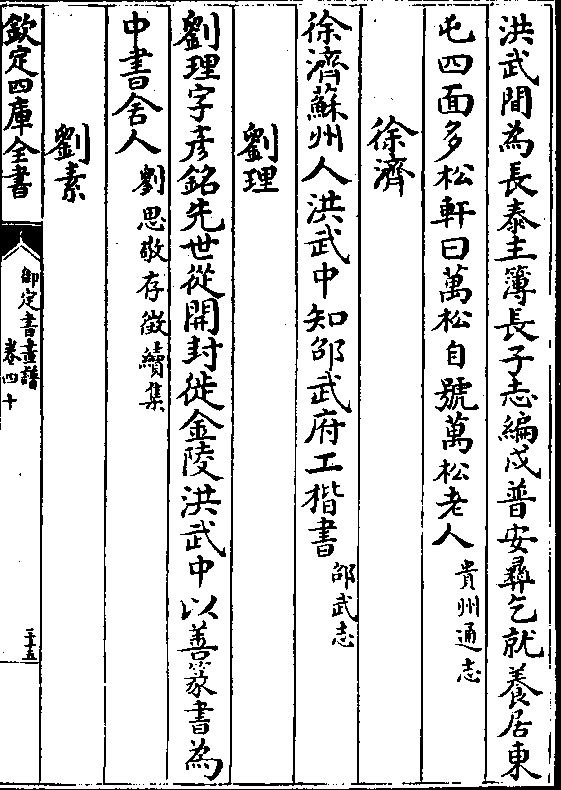 洪武間為長泰主簿長子志編戍普安彛乞就養居東
屯四面多松軒曰萬松自號萬松老人貴州通志
徐濟
徐濟蘇州人洪武中知邵武府工楷書邵武志
劉理
劉理字彦銘先世從開封徙金陵洪武中以善篆書為
中書舍人劉思敬存徵續集
劉素
欽定四庫全書
御定書畫譜
卷四十
三十五